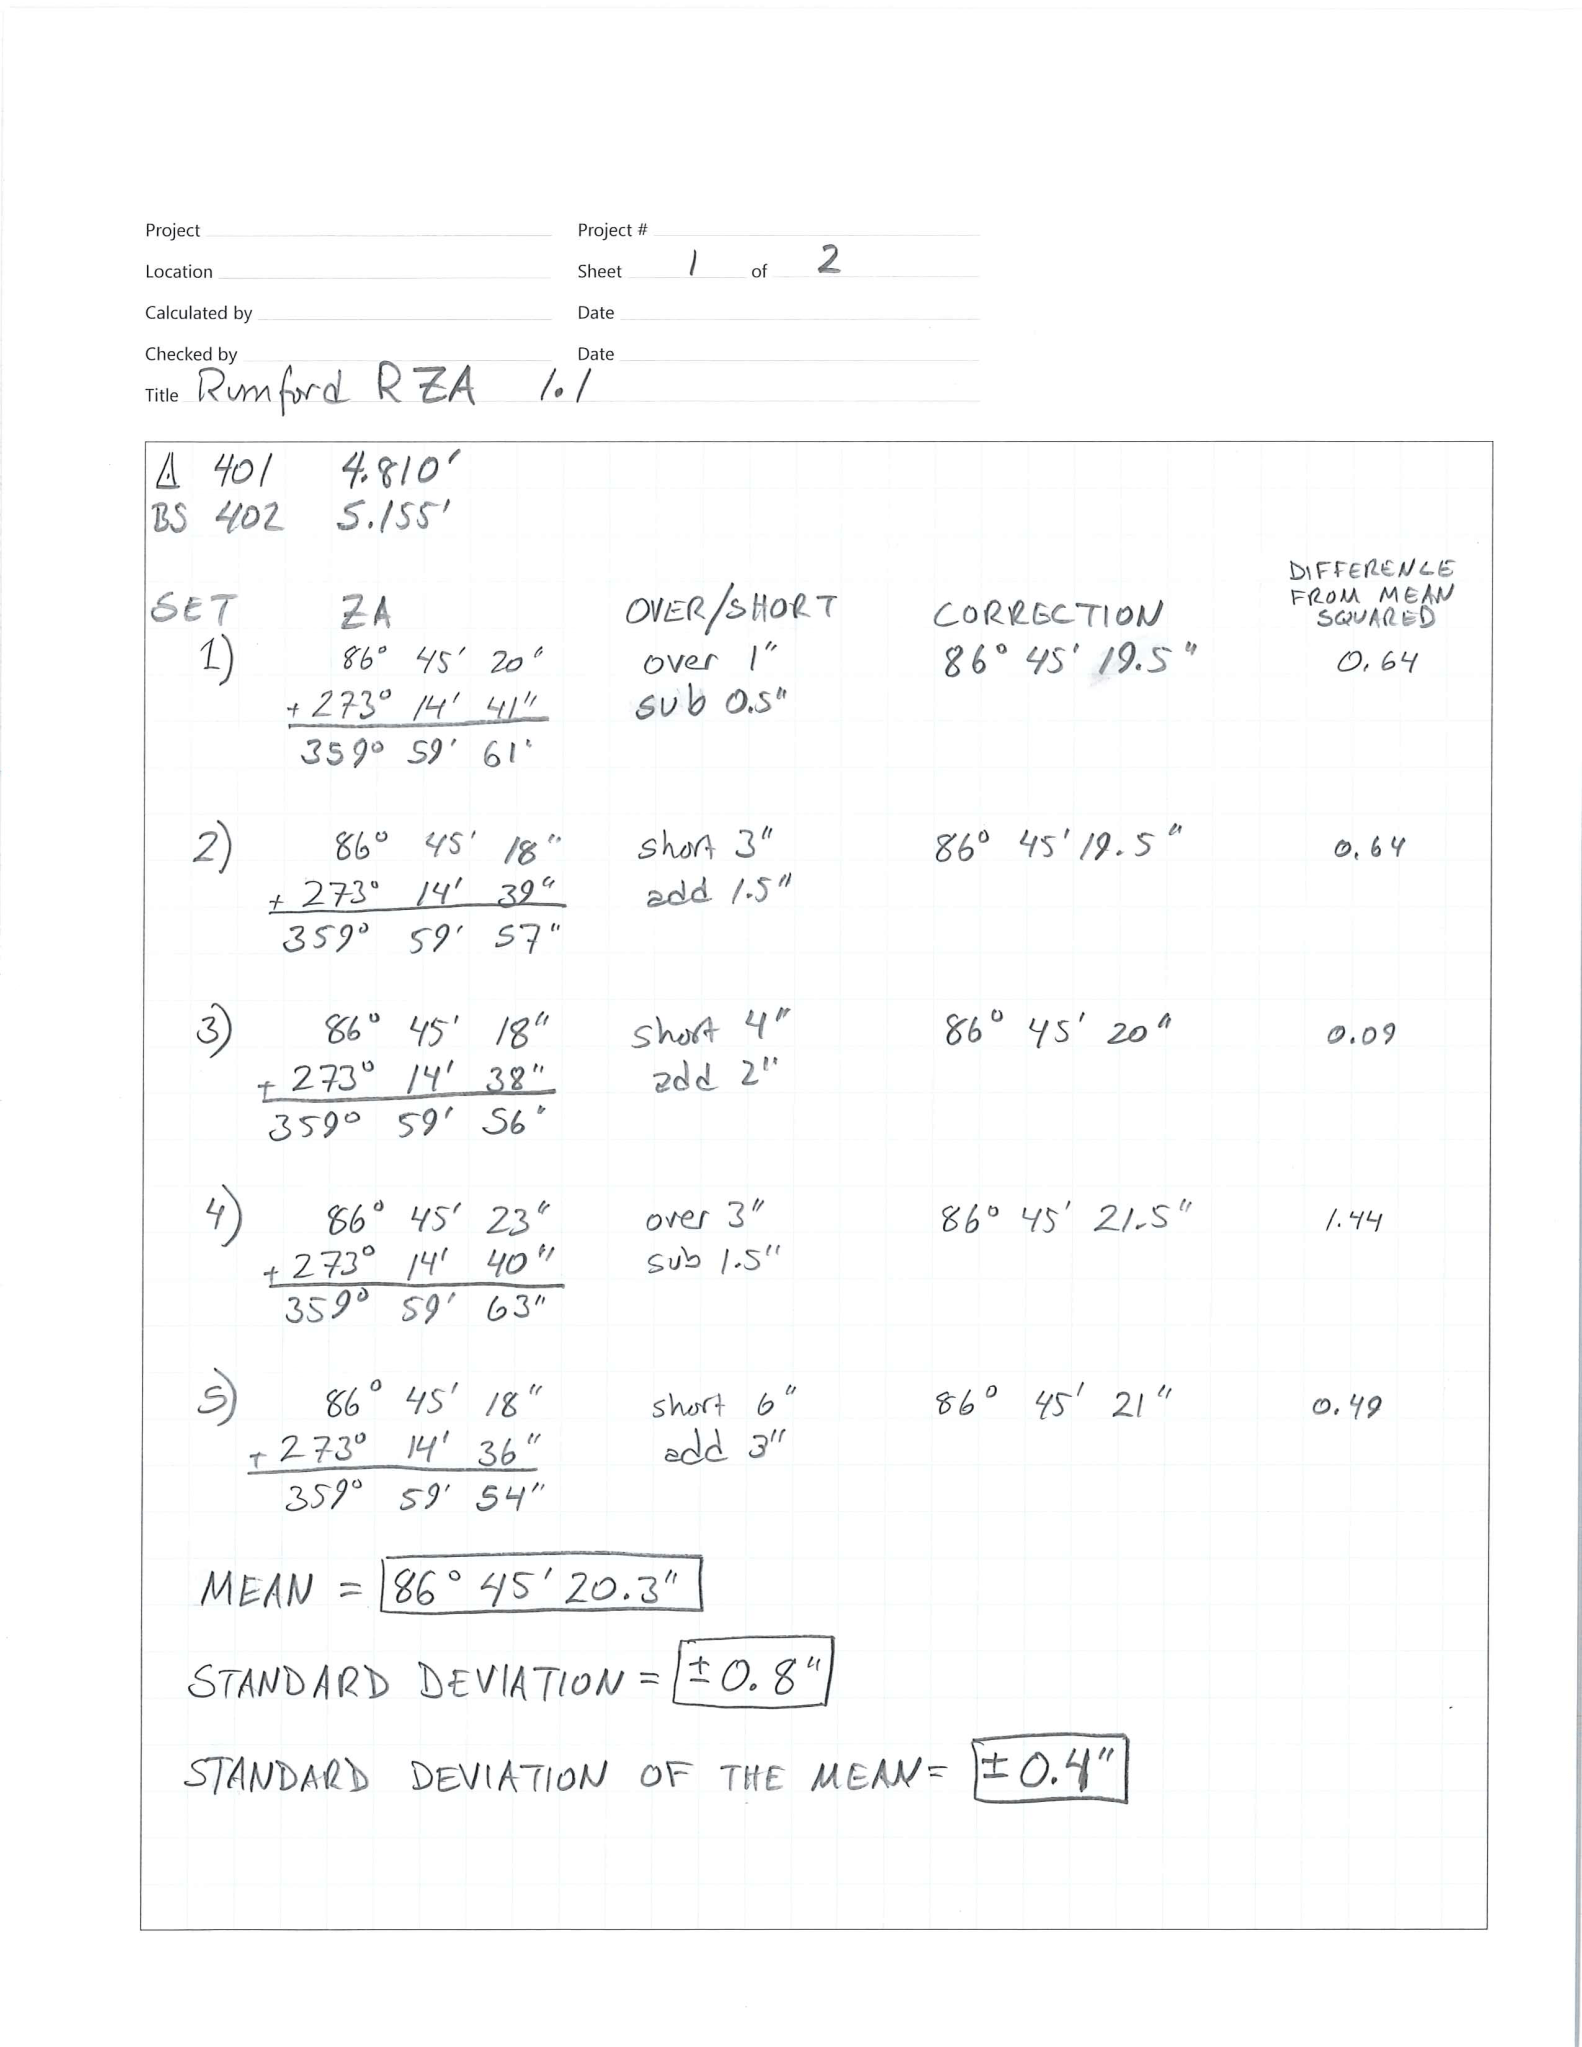 Project
Project #
Location
Sheet 1 of 2
Calculated by
Date
Checked by
Date
Title Rumford RZA 1.1
△ 401 4.810'
BS 402 5.155'
SET ZA OVER/SHORT CORRECTION DIFFERENCE FROM MEAN SQUARED
1) 86° 45' 20" over 1" 86° 45' 19.5" 0.64
+ 273° 14' 41" sub 0.5"
359° 59' 61"
2) 86° 45' 18" short 3" 86° 45' 19.5" 0.64
+ 273° 14' 39" add 1.5"
359° 59' 57"
3) 86° 45' 18" short 4" 86° 45' 20" 0.09
+ 273° 14' 38" add 2"
359° 59' 56"
4) 86° 45' 23" over 3" 86° 45' 21.5" 1.44
+ 273° 14' 40" sub 1.5"
359° 59' 63"
5) 86° 45' 18" short 6" 86° 45' 21" 0.49
+ 273° 14' 36" add 3"
359° 59' 54"
MEAN = 86° 45' 20.3"
STANDARD DEVIATION = ±0.8"
STANDARD DEVIATION OF THE MEAN = ±0.4"